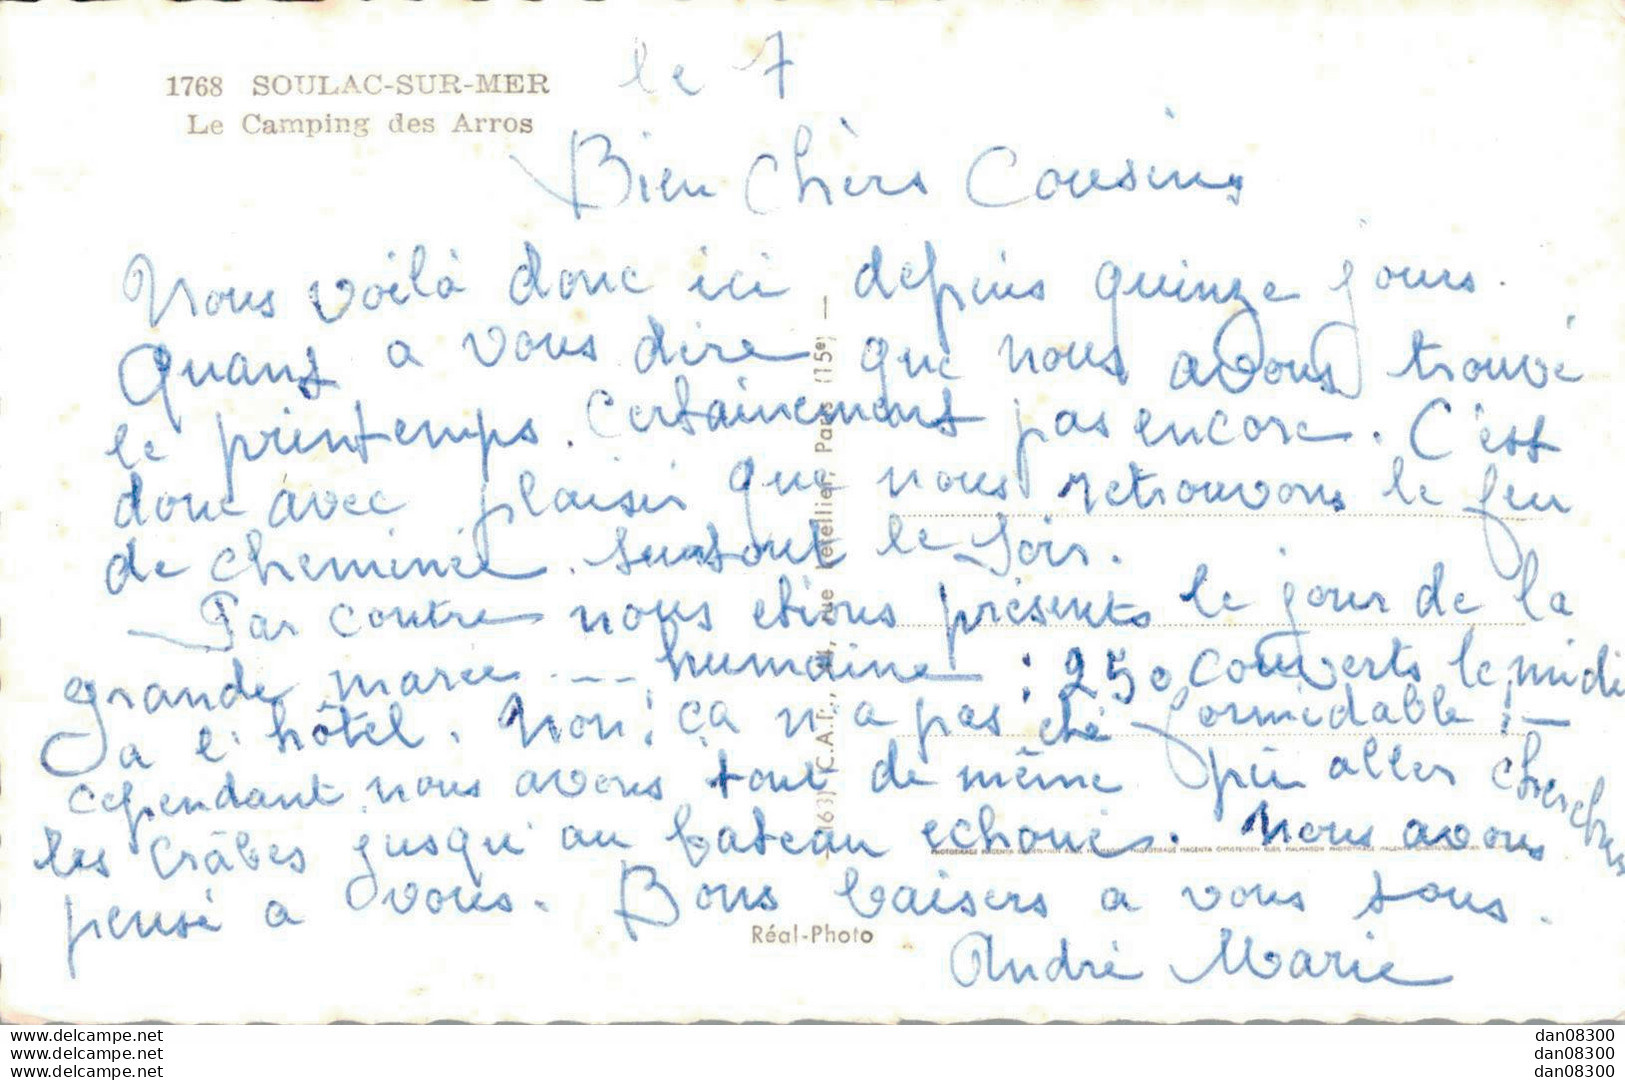 1768 SOULAC-SUR-MER
Le Camping des Arros
le 7
Bien Chèrs Cousins
Nous voilà donc ici depuis quinze jours.
Quant a vous dire que nous avons trouvé
le printemps. Certainement pas encore. C'est
donc avec plaisir que nous retrouvons le feu
de cheminée. Surtout le soir.
Par contre nous etions présents le jour de la
grande marée --- humaine : 250 couverts le midi
a l'hôtel. Non! ça n'a pas été formidable! —
cependant nous avons tout de même pu aller chercher
les crâbes jusqu'au bateau echoué. Nous avons
pensé a vous. Bons baisers a vous tous.
André Marie
(C.A.P.), rue Letellier, Paris (15e) —
Réal-Photo
www.delcampe.net
www.delcampe.net
www.delcampe.net
dan08300
dan08300
dan08300